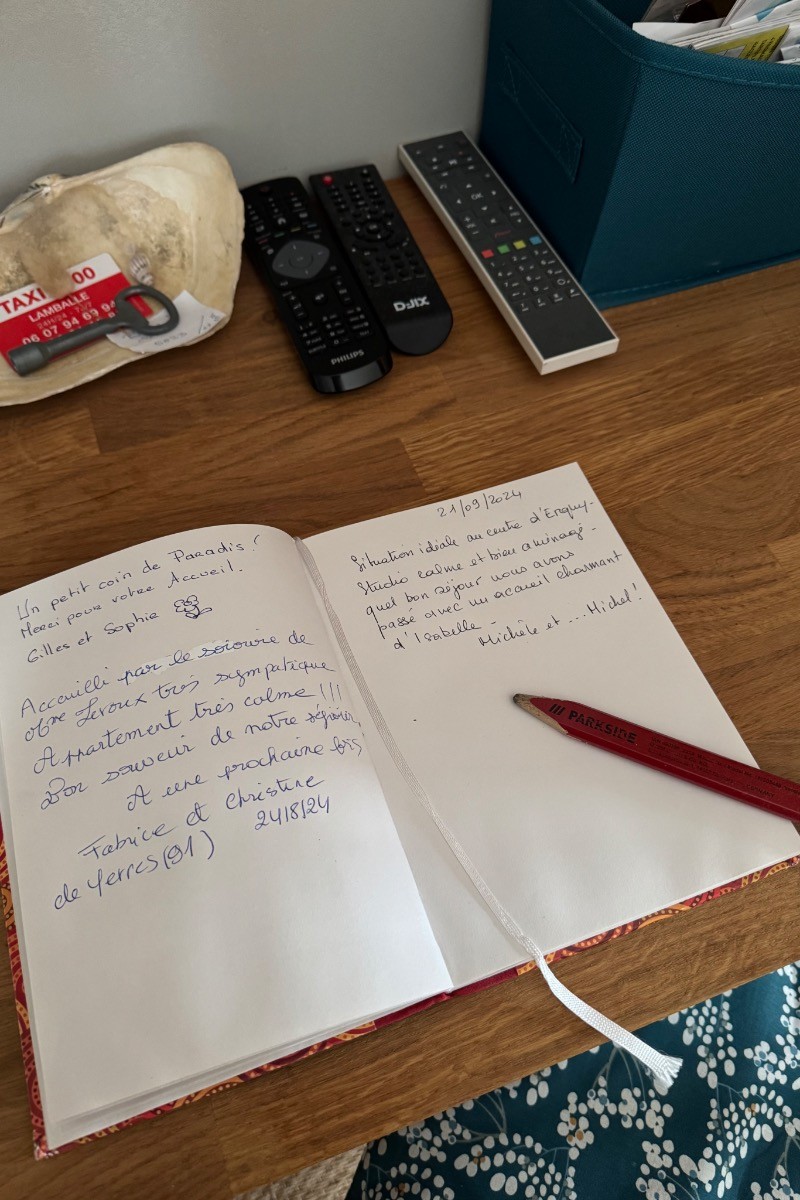 TAXI 00
LAMBALLE
24H/24 - 7J/7
06 07 94 69 94
PHILIPS
D-JIX
OK
Un petit coin de Paradis !
Merci pour votre Accueil.
Gilles et Sophie
Accueilli par le sourire de
Mme Leroux très sympatique
Appartement très calme !!!
Bon souvenir de notre
A une prochaine fois
Fabrice et Christine
de Yerres (91) 24/8/24
21/09/2024
Situation idéale au centre d'Erquy.
Studio calme et bien aménagé.
quel bon séjour nous avons
passé avec un accueil charmant
d'Isabelle -
Michèle et ... Michel !
PARKSIDE